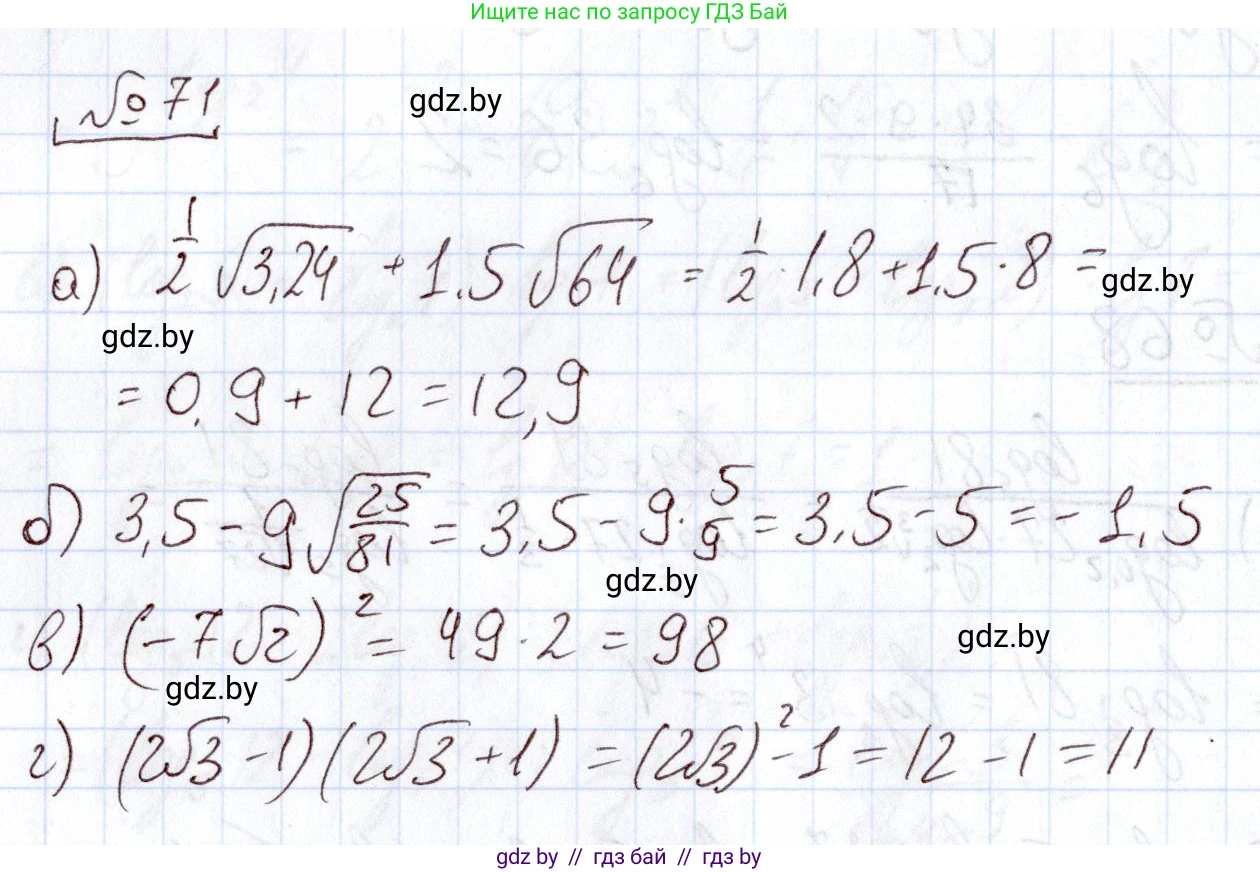 Ищите нас по запросу ГДЗ Бай
№ 71
gdz.by
а) 1/2 √3,24 + 1,5 √64 = 1/2 · 1,8 + 1,5 · 8 =
gdz.by
gdz.by
= 0,9 + 12 = 12,9
б) 3,5 - 9 √25/81 = 3,5 - 9 · 5/9 = 3,5 - 5 = - 1,5
gdz.by
в) (-7√2)² = 49 · 2 = 98
gdz.by
gdz.by
г) (2√3 - 1) (2√3 + 1) = (2√3)² - 1 = 12 - 1 = 11
gdz by // гдз бай // гдз by